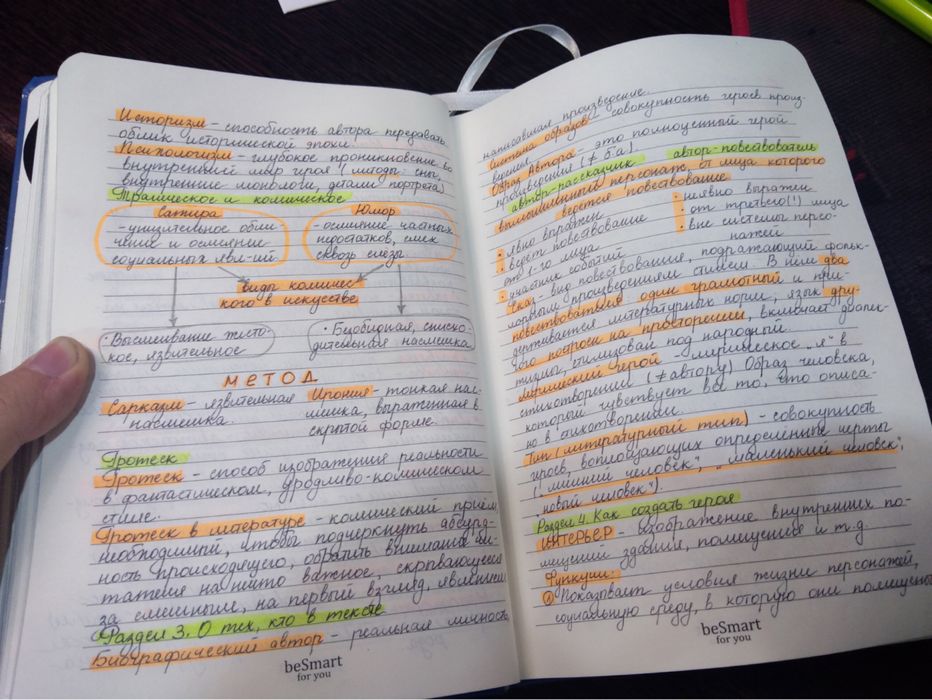 Историзм – способность автора передавать
облик исторической эпохи.
Психологизм – глубокое проникновение во
внутренний мир героя (методы: сны,
внутренние монологи, детали портрета)
Трагическое и комическое
Сатира
– унизительное обли-
чение и осмеяние
социальных явл-ий.
Юмор
– осмеяние частных
недостатков, смех
сквозь слёзы.
виды комичес-
кого в искусстве
· Высмеивание жесто-
кое, язвительное
· Безобидная, снисхо-
дительная насмешка
МЕТОД
Сарказм – язвительная
насмешка.
Ирония – тонкая нас-
мешка, выраженная в
скрытой форме.
Гротеск
Гротеск – способ изображения реальности
в фантастическом, уродливо-комическом
стиле.
Гротеск в литературе – комический приём,
необходимый, чтобы подчеркнуть абсурд-
ность происходящего, обратить внимание чи-
тателя на нечто важное, скрывающееся
за смешным, на первый взгляд, явлением
Раздел 3. О тех, кто в тексте
Биографический автор – реальная личность,
beSmart
for you
написавшая произведение.
Система образов – совокупность героев произ-
ведения.
Образ Автора – это полноценный герой
произведения (≠ б.а)
автор-рассказчик автор-повествователь
вполноценный персонаж, от лица которого
ведется повествование
· явно выражен
· ведет повествование
от 1-го лица
· участник событий
· неявно выражен
· от третьего(!) лица
· вне системы персо-
нажей
Сказ – вид повествования, подражающий фольк-
лорным произведениям стилем. В нем два
повествования: один грамотный и при-
держивается литературных норм, язык дру-
гого построен на просторечии, включает диалек-
тизмы, стилизован под народный.
Лирический герой – лирическое „я" в
стихотворении (≠ автору) Образ человека,
который чувствует все то, что описа-
но в стихотворении.
Тип (литературный тип) – совокупность
героев, воплощающих определённые черты
(„лишний человек", „маленький человек",
„новый человек").
Раздел 4. Как создать героя
ИНТЕРЬЕР – изображение внутренних по-
мещений здания, помещения и т.д.
Функции:
① Показывает условия жизни персонажей,
социальную среду, в которую они помещены
beSmart
for you